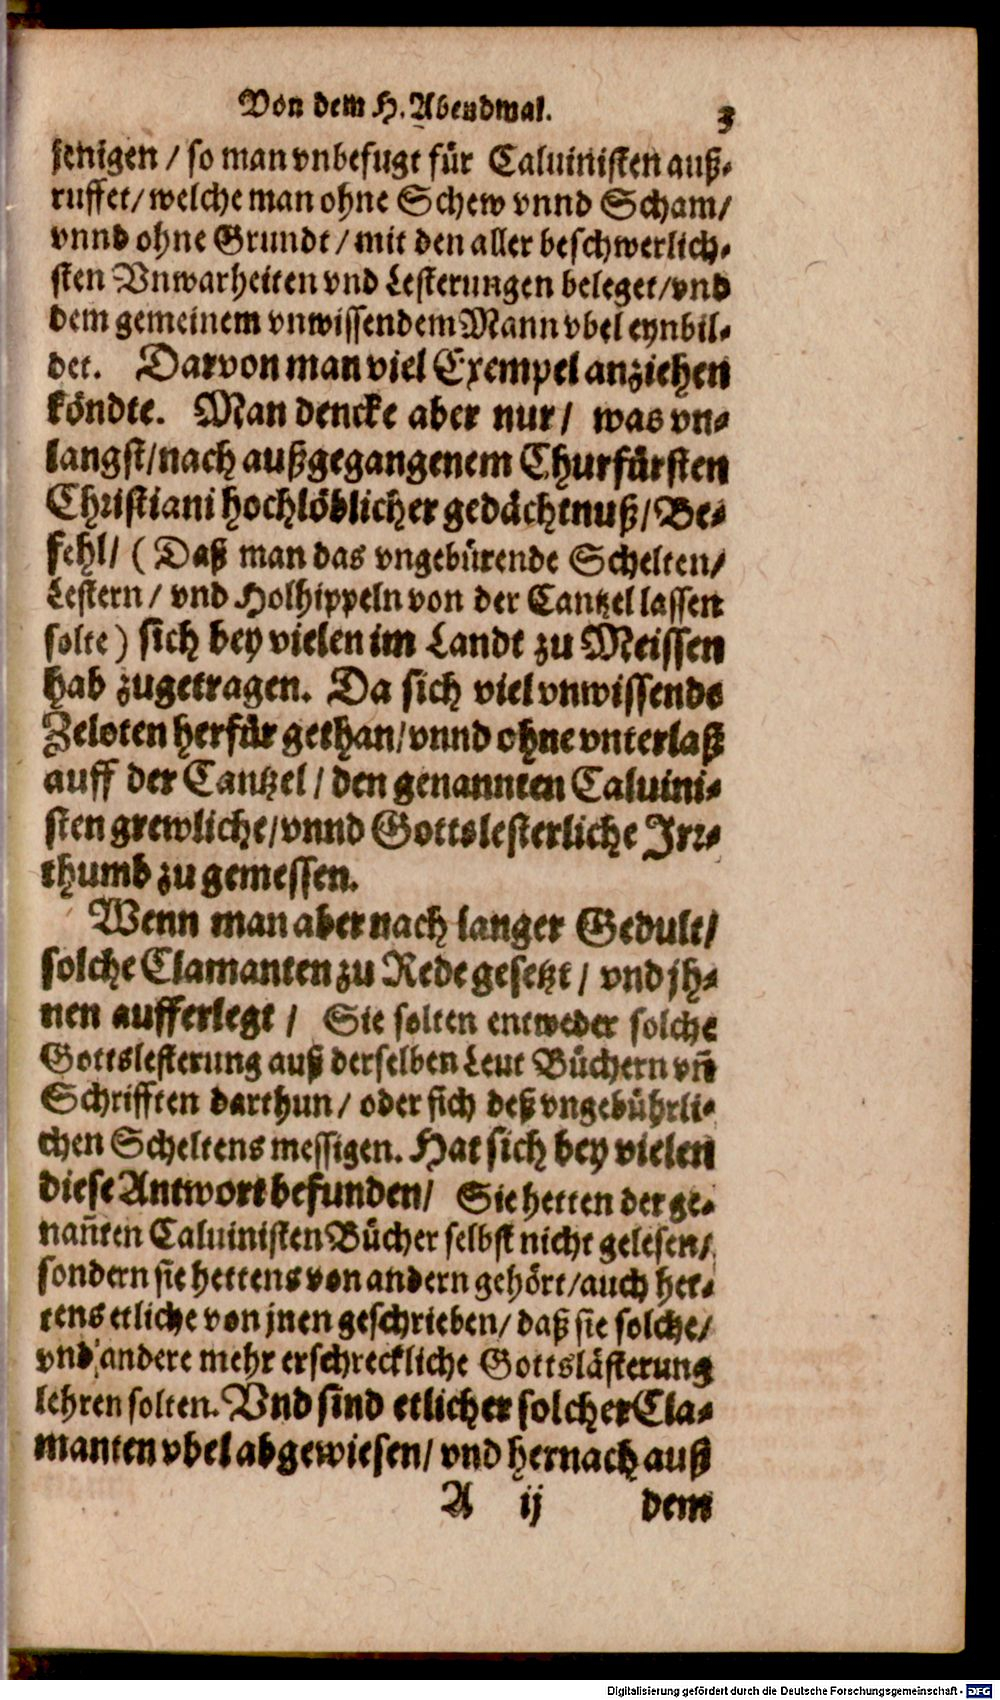 Von dem H. Abendmal. 3
jenigen / so man vnbefugt für Caluinisten auß-
ruffet / welche man ohne Schew vnnd Scham /
vnnd ohne Grundt / mit den aller beschwerlich-
sten Vnwarheiten vnd Lesterungen beleget / vnd
dem gemeinem vnwissendem Mann vbel eynbil-
det. Darvon man viel Exempel anziehen
köndte. Man dencke aber nur / was vn-
langst / nach außgegangenem Churfürsten
Christiani hochlöblicher gedächtnuß / Be-
fehl / (Daß man das vngebürende Schelten /
Lestern / vnd Holhippeln von der Cantzel lassen
solte) sich bey vielen im Landt zu Meissen
hab zugetragen. Da sich viel vnwissende
Zeloten herfür gethan / vnnd ohne vnterlaß
auff der Cantzel / den genannten Caluini-
sten grewliche / vnnd Gottslesterliche Irr-
thumb zu gemessen.
Wenn man aber nach langer Gedult /
solche Clamanten zu Rede gesetzt / vnd jh-
nen aufferlegt / Sie solten entweder solche
Gottslesterung auß derselben Leut Büchern vñ
Schrifften darthun / oder sich deß vngebührli-
chen Scheltens messigen. Hat sich bey vielen
diese Antwort befunden / Sie hetten der ge-
nañten Caluinisten Bücher selbst nicht gelesen /
sondern sie hettens von andern gehört / auch het-
tens etliche von jnen geschrieben / daß sie solche /
vnd andere mehr erschreckliche Gottslästerung
lehren solten. Vnd sind etlicher solcher Cla-
manten vbel abgewiesen / vnd hernach auß
A ij dem
Digitalisierung gefördert durch die Deutsche Forschungsgemeinschaft - DFG